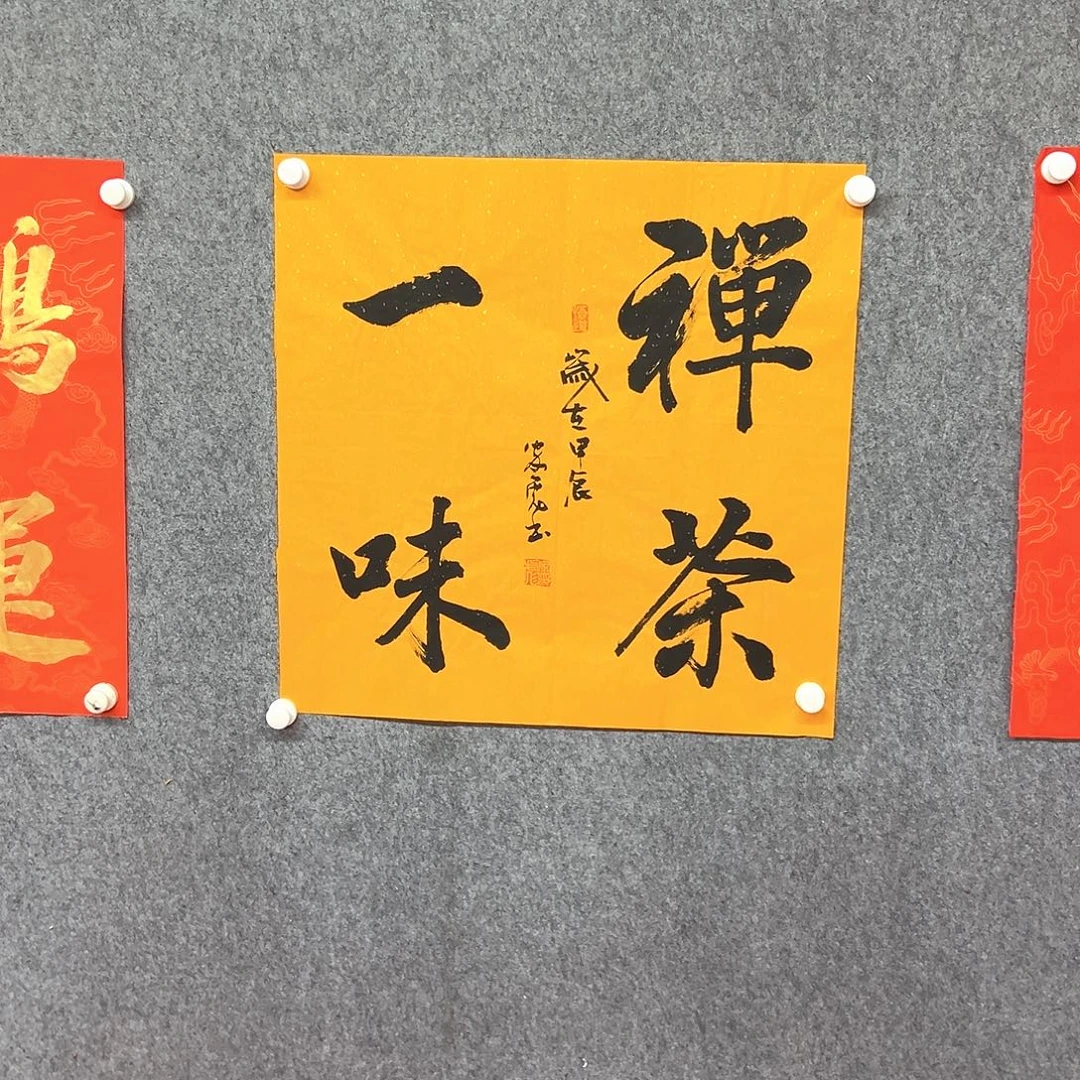 禪茶
一味
歲在甲辰
運